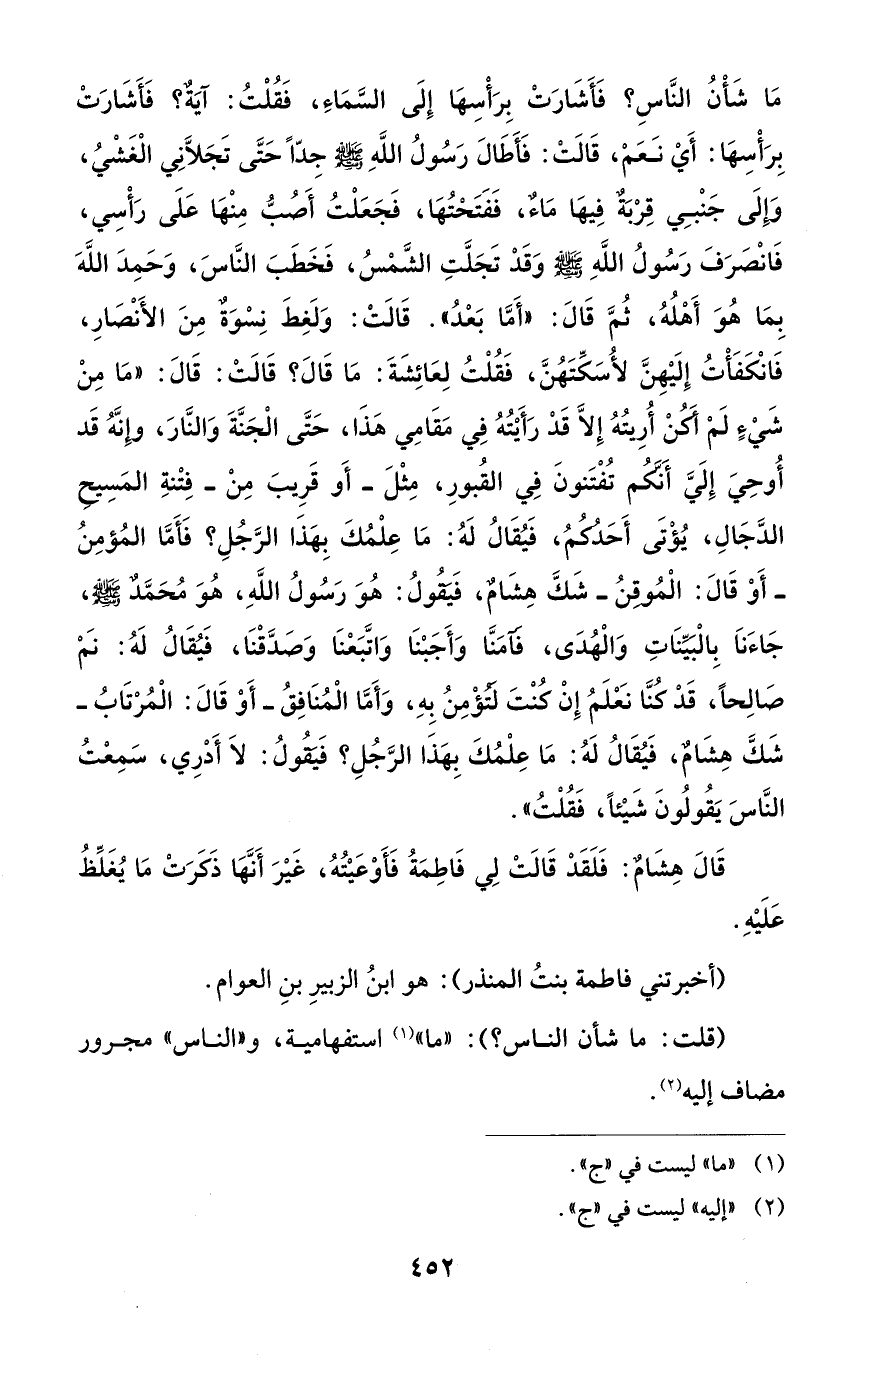 مَا شَأْنُ النَّاسِ؟ فَأَشَارَتْ بِرَأْسِهَا إِلَى السَّمَاءِ، فَقُلْتُ: آيَةٌ؟ فَأَشَارَتْ
بِرَأْسِهَا: أَيْ نَعَمْ، قَالَتْ: فَأَطَالَ رَسُولُ اللَّهِ ﷺ جِدّاً حَتَّى تَجَلاَّنِي الْغَشْيُ،
وَإِلَى جَنْبِي قِرْبَةٌ فِيهَا مَاءٌ، فَفَتَحْتُهَا، فَجَعَلْتُ أَصُبُّ مِنْهَا عَلَى رَأْسِي،
فَانْصَرَفَ رَسُولُ اللَّهِ ﷺ وَقَدْ تَجَلَّتِ الشَّمْسُ، فَخَطَبَ النَّاسَ، وَحَمِدَ اللَّهَ
بِمَا هُوَ أَهْلُهُ، ثُمَّ قَالَ: «أَمَّا بَعْدُ». قَالَتْ: وَلَغِطَ نِسْوَةٌ مِنَ الأَنْصَارِ،
فَانْكَفَأْتُ إِلَيْهِنَّ لأُسَكِّتَهُنَّ، فَقُلْتُ لِعَائِشَةَ: مَا قَالَ؟ قَالَتْ: قَالَ: «مَا مِنْ
شَيْءٍ لَمْ أَكُنْ أُرِيتُهُ إِلاَّ قَدْ رَأَيْتُهُ فِي مَقَامِي هَذَا، حَتَّى الْجَنَّةَ وَالنَّارَ، وَإِنَّهُ قَد
أُوحِيَ إِلَيَّ أَنَّكُم تُفْتَنونَ فِي القُبورِ، مِثْلَ ـ أَو قَرِيبَ مِنْ ـ فِتْنةِ المَسِيحِ
الدَّجَالِ، يُؤْتَى أَحَدُكُمُ، فَيُقَالُ لَهُ: مَا عِلْمُكَ بِهَذَا الرَّجُلِ؟ فَأَمَّا المُؤمِنُ
ـ أَوْ قَالَ: الْمُوقِنُ ـ شَكَّ هِشَامٌ، فَيَقُولُ: هُوَ رَسُولُ اللَّهِ، هُوَ مُحَمَّدٌ ﷺ،
جَاءَنَا بِالْبَيِّنَاتِ وَالْهُدَى، فَآمَنَّا وَأَجَبْنَا وَاتَّبَعْنَا وَصَدَّقْنَا، فَيُقَالُ لَهُ: نَمْ
صَالِحاً، قَدْ كُنَّا نَعْلَمُ إِنْ كُنْتَ لَتُؤْمِنُ بِهِ، وَأَمَّا الْمُنَافِقُ ـ أَوْ قَالَ: الْمُرْتَابُ ـ
شَكَّ هِشَامٌ، فَيُقَالُ لَهُ: مَا عِلْمُكَ بِهَذَا الرَّجُلِ؟ فَيَقُولُ: لاَ أَدْرِي، سَمِعْتُ
النَّاسَ يَقُولُونَ شَيْئاً، فَقُلْتُ».
قَالَ هِشَامٌ: فَلَقَدْ قَالَتْ لِي فَاطِمَةُ فَأَوْعَيْتُهُ، غَيْرَ أَنَّهَا ذَكَرَتْ مَا يُغَلِّظُ
عَلَيْهِ.
(أخبرتني فاطمة بنتُ المنذر): هو ابنُ الزبيرِ بنِ العوام.
(قلت: ما شأن الناس؟): «ما»(١) استفهامية، و«الناس» مجرور
مضاف إليه(٢).
(١) «ما» ليست في «ج».
(٢) «إليه» ليست في «ج».
٤٥٢